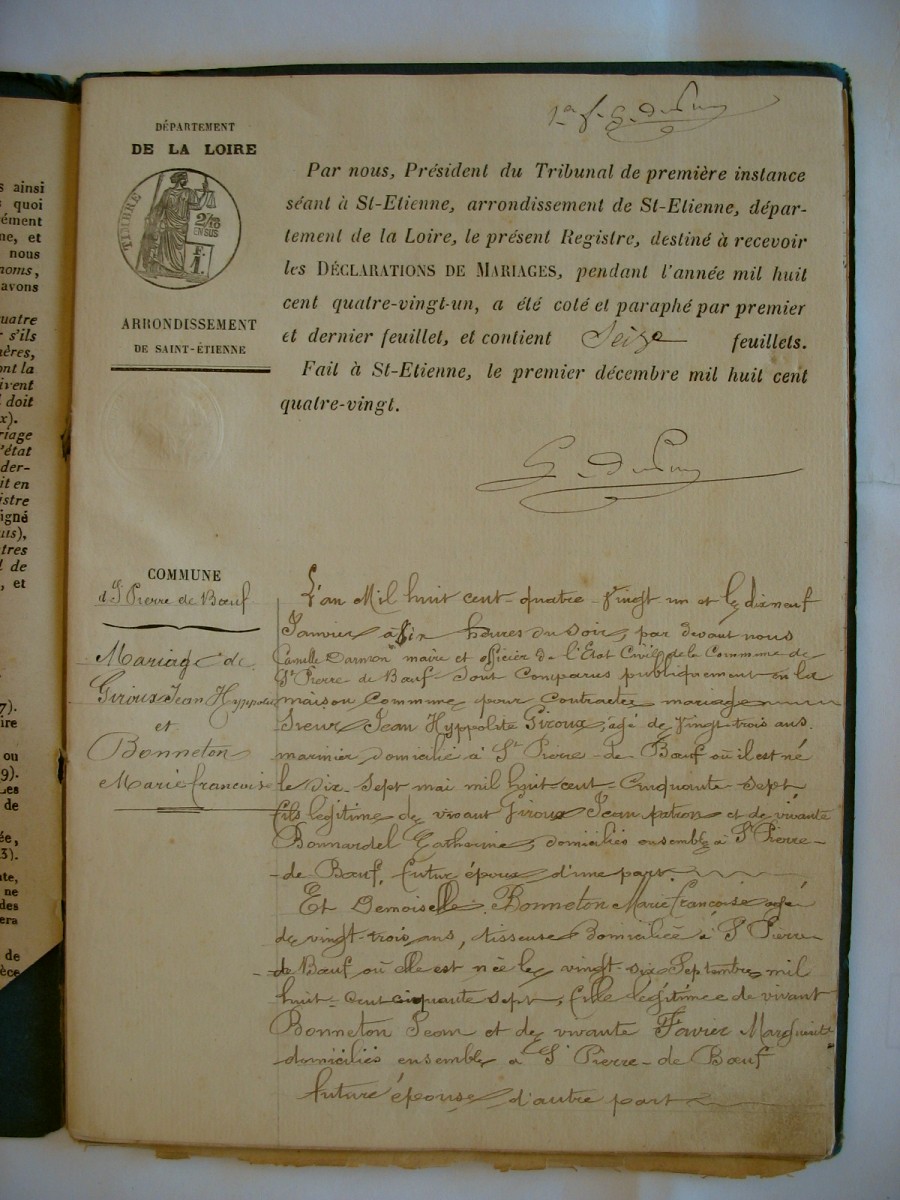 s ainsi
quoi
rément
ne, et
nous
noms,
avons
uatre
r s'ils
nères,
ont la
ivent
doit
x).
riage
'état
der-
it en
istre
igné
us),
tres
l de
, et
7).
ire
ou
9).
Les
de
ée,
3).
nte,
ne
des
era
de
èce
DÉPARTEMENT
DE LA LOIRE
TIMBRE
2/10
EN SUS
F.
1.
ARRONDISSEMENT
DE SAINT-ÉTIENNE
Par nous, Président du Tribunal de première instance
séant à St-Etienne, arrondissement de St-Etienne, dépar-
tement de la Loire, le présent Registre, destiné à recevoir
les DÉCLARATIONS DE MARIAGES, pendant l'année mil huit
cent quatre-vingt-un, a été coté et paraphé par premier
et dernier feuillet, et contient Seize feuillets.
Fait à St-Etienne, le premier décembre mil huit cent
quatre-vingt.
COMMUNE
d St Pierre de Bœuf
Mariage de
Giroux Jean Hyppolite
et
Bonneton
Marie francoise
L'an Mil huit cent quatre-Vingt un et le dix neuf
Janvier à Six heures du soir, par devant nous
Camille Darnon maire et officier de l'Etat Civil de la Commune de
St Pierre de Bœuf Sont Comparus publiquement en la
maison Commune pour contracter mariage
Sieur Jean Hyppolite Giroux, agé de Vingt-trois ans
marinier, domicilié à St Pierre-de Bœuf où il est né
le Dix-Sept mai mil huit cent-Cinquante Sept
fils légitime de vivant Giroux Jean patron et de vivante
Bonnardel Catherine, domicilies ensemble à St Pierre-
-de Bœuf, futur époux d'une part.
Et Demoiselle Bonneton Marie Francoise agée
de vingt-trois ans, tisseuse Domiciliée à St Pierre
de Bœuf où elle est née le vingt-six Septembre mil
huit-Cent cinquante sept, fille légitimée de vivant
Bonneton Jean et de vivante Favier Marguerite
domiciliés ensemble à St Pierre-de Bœuf
future épouse d'autre part